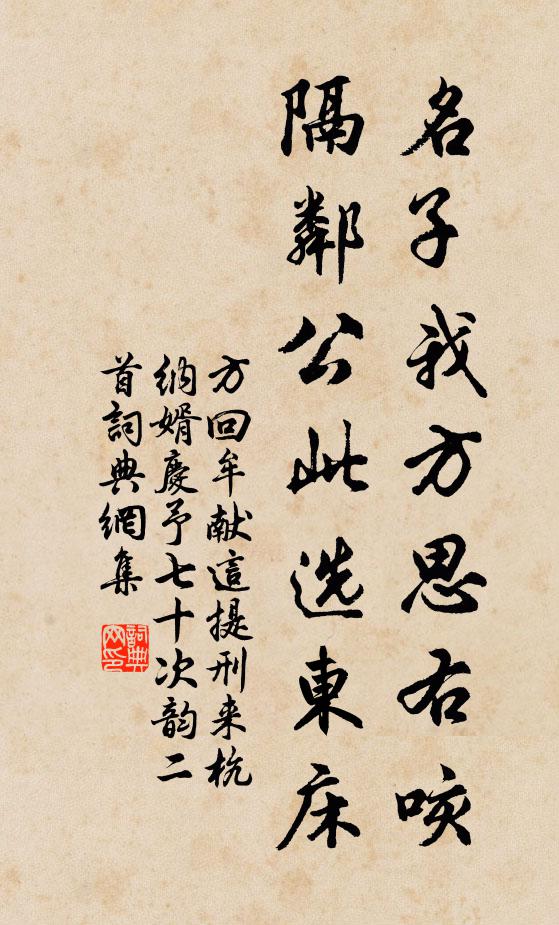 名子我方思右咳
隔鄰公此选東床
方回牟献這提刑来杭
纳婿慶予七十次韵二
首詞典網集
詞典网印